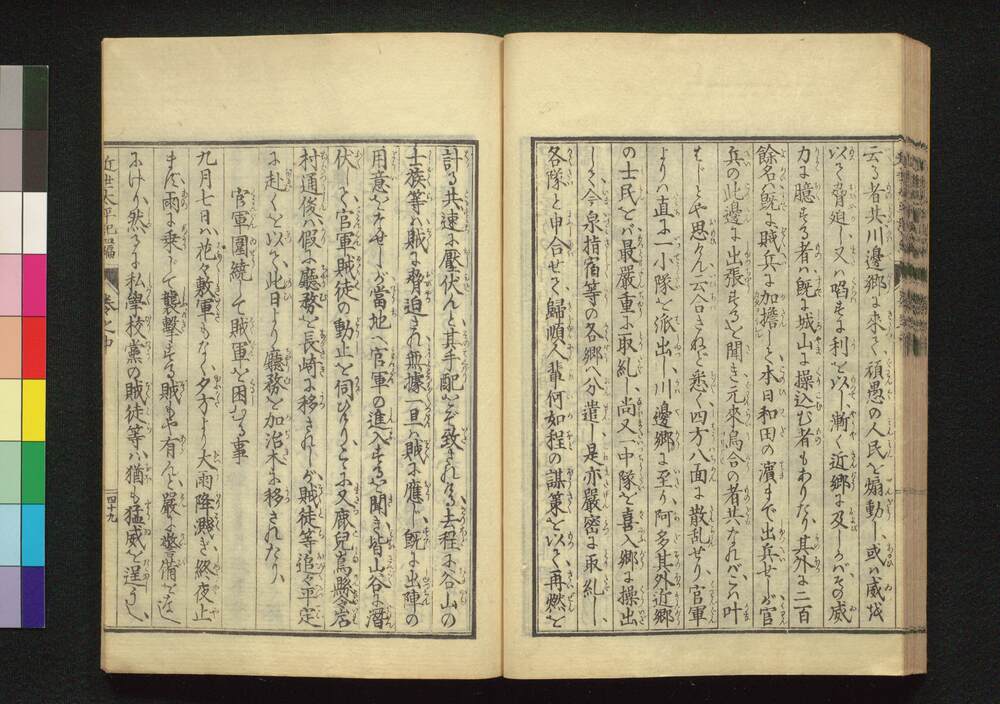 云る者共川邊郷に來て頑愚の人民を煽動し或ハ威を
以て脅迫し又ハ啗すに利を以し漸く近郷に及しかバその威
力に臆する者ハ既に城山に操込む者もありたり其外に二百
餘名ハ既に賊兵に加擔しと本日和田の濱まで出兵せしが官
兵の此邊に出張するを聞き元來烏合の者共なれバこハ叶
はじとや思ひけん云合さねど悉く四方八面に散乱せり官軍
よりハ直に一小隊を派出し川邊郷に至り阿多其外近郷
の士民をバ最嚴重に取糺し尚又一中隊を喜入郷に操出
して今泉指宿等の各郷へ分遣し是亦嚴密に取糺し
各隊と申合せて歸順の輩何如程の謀策を以て再燃を
計る共速に壓伏んと其手配をぞ致されける去程に谷山の
士族等ハ賊に脅迫され無據一旦ハ賊に應し既に出陣の
用意をなせしが當地へ官軍の進入するを聞き皆山谷に潜
伏して官軍賊徒の動止を伺ひけりこゝに又鹿兒島縣令岩
村通俊ハ假に廳務を長崎に移されしが賊徒等追々平定
に赴くを以て此日より廳務を加治木に移されたり
官軍圍繞して賊軍を困むる事
九月七日ハ花々敷軍もなく夕方より大雨降濺ぎ終夜止
まず雨に乗じて襲撃する賊もや有んと嚴に警備をなし
にけり然るに私學校黨の賊徒等ハ猶も猛威を逞うし
近世太平記 編
巻之中
四十九